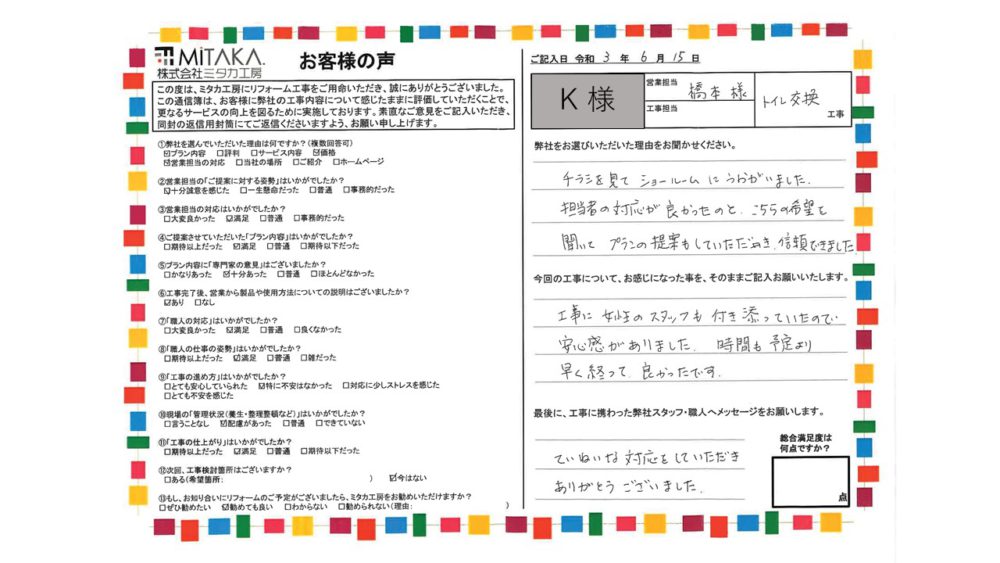 MiTAKA.
株式会社ミタカ工房
お客様の声
この度は、ミタカ工房にリフォーム工事をご用命いただき、誠にありがとうございました。
この通信簿は、お客様に弊社の工事内容について感じたままに評価していただくことで、
更なるサービスの向上を図るために実施しております。素直なご意見をご記入いただき、
同封の返信用封筒にてご返信くださいますよう、お願い申し上げます。
①弊社を選んでいただいた理由は何ですか?(複数回答可)
☑プラン内容 □評判 □サービス内容 ☑価格
☑営業担当の対応 □当社の場所 □ご紹介 □ホームページ
②営業担当の「ご提案に対する姿勢」はいかがでしたか?
☑十分誠意を感じた □一生懸命だった □普通 □事務的だった
③営業担当の対応はいかがでしたか?
□大変良かった ☑満足 □普通 □事務的だった
④ご提案させていただいた「プラン内容」はいかがでしたか?
□期待以上だった ☑満足 □普通 □期待以下だった
⑤プラン内容に「専門家の意見」はございましたか?
□かなりあった ☑十分あった □普通 □ほとんどなかった
⑥工事完了後、営業から製品や使用方法についての説明はございましたか?
☑あり □なし
⑦「職人の対応」はいかがでしたか?
□大変良かった ☑満足 □普通 □良くなかった
⑧「職人の仕事の姿勢」はいかがでしたか?
□期待以上だった ☑満足 □普通 □雑だった
⑨「工事の進め方」はいかがでしたか?
□とても安心していられた ☑特に不安はなかった □対応に少しストレスを感じた
□とても不安を感じた
⑩現場の「管理状況(養生・整理整頓など)」はいかがでしたか?
□言うことなし ☑配慮があった □普通 □できていない
⑪「工事の仕上がり」はいかがでしたか?
□期待以上だった ☑満足 □普通 □期待以下だった
⑫次回、工事検討箇所はございますか?
□ある(希望箇所: ) ☑今はない
⑬もし、お知り合いにリフォームのご予定がございましたら、ミタカ工房をお勧めいただけますか?
□ぜひ勧めたい ☑勧めても良い □わからない □勧められない(理由: )
ご記入日 令和 3 年 6 月 15 日
K 様
営業担当 橋本 様
工事担当
トイレ交換 工事
弊社をお選びいただいた理由をお聞かせください。
チラシを見て ショールームに うかがいました。
担当者の対応が良かったのと、こちらの希望を
聞いて プランの提案もしていただき、信頼できました
今回の工事について、お感じになった事を、そのままご記入お願いいたします。
工事に 女性のスタッフも 付き添っていたので
安心感がありました。 時間も予定より
早く終って 良かったです。
最後に、工事に携わった弊社スタッフ・職人へメッセージをお願いします。
ていねいな対応をしていただき
ありがとうございました。
総合満足度は
何点ですか?
点